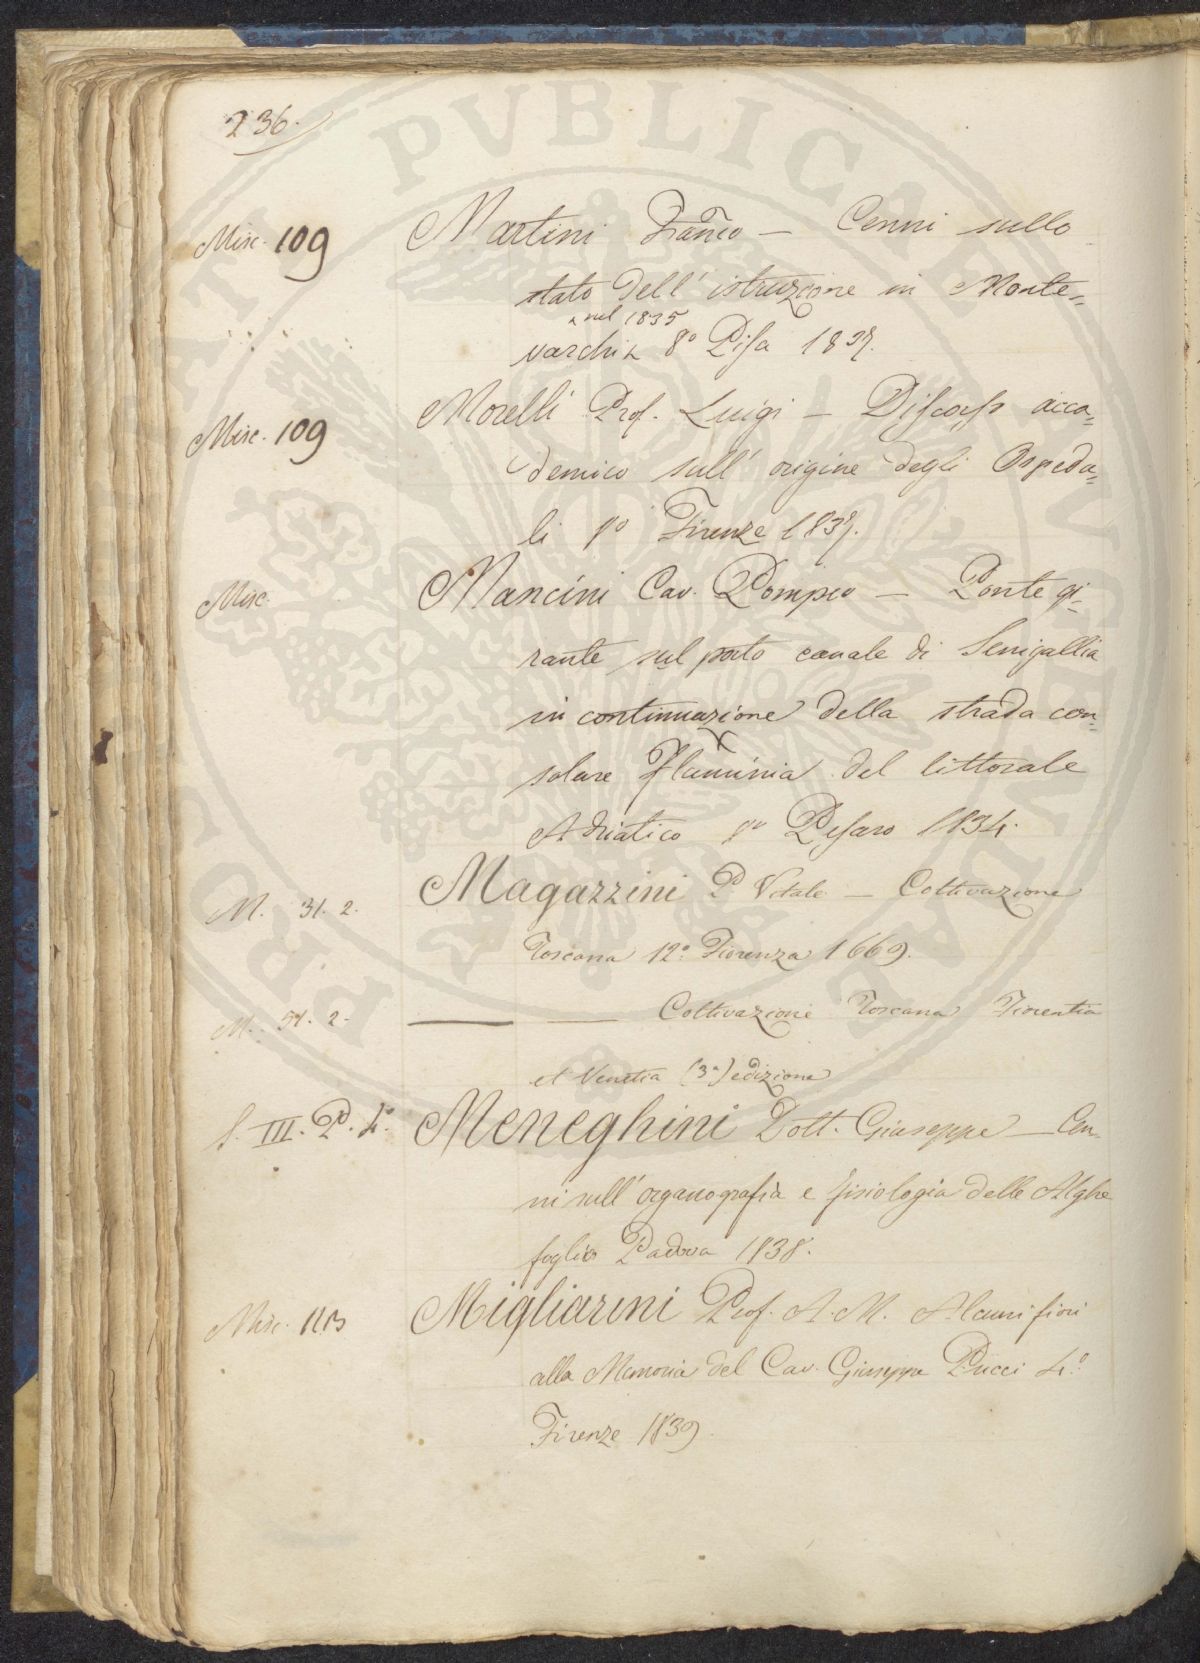 236.
Misc. 109 Martini Franco — Cenni sullo
stato dell' istruzione in Monte=
nel 1835
varchi 8º Pisa 1837.
Misc. 109 Morelli Prof. Luigi — Discorso acca=
demico sull' origine degli Ospeda=
li 8º Firenze 1837.
Misc. Mancini Cav. Pompeo — Ponte gi=
rante sul porto canale di Senigallia
in continuazione della strada con=
solare Flaminia del littorale
Adriatico 8º Pesaro 1834.
M. 31. 2. Magazzini P. Vitale — Coltivazione
Toscana 12º. Fiorenza 1669.
M. 51. 2. —— —— Coltivazione Toscana Fiorentia
et Venetia (3ª) edizione
S. III. P. 4º. Meneghini Dott. Giuseppe — Cen=
ni sull' organografia e fisiologia delle Alghe
foglio Padova 1838.
Misc. 113 Migliarini Prof. A. M. Alcuni fiori
alla Memoria del Cav. Giuseppe Pucci 4º.
Firenze 1839.
PROBITATI PVBLICAE